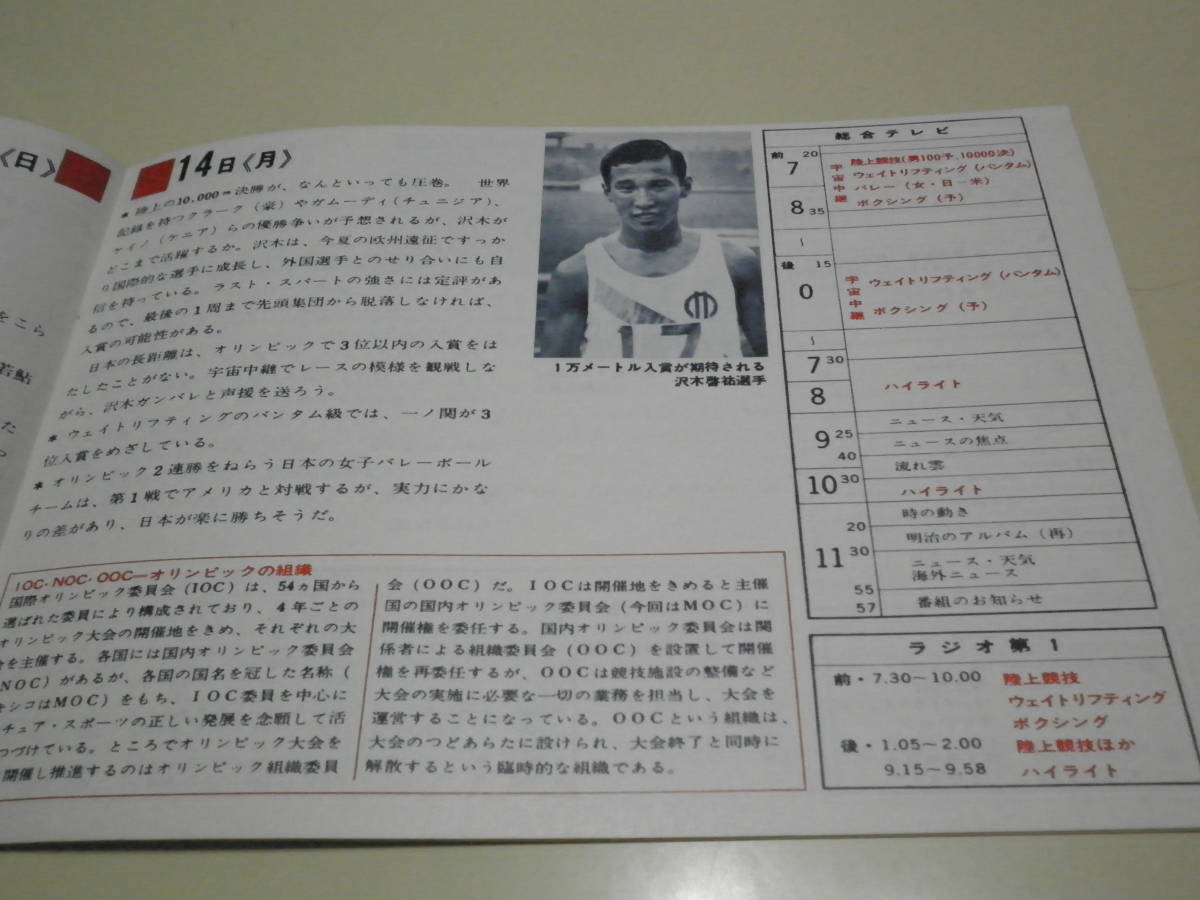 〈日〉
をこら
若鮎
た
14日〈月〉
＊陸上の10,000m決勝が、なんといっても圧巻。 世界
記録を持つクラーク（豪）やガムーディ（チュニジア）、
ケイノ（ケニア）らの優勝争いが予想されるが、沢木が
どこまで活躍するか。沢木は、今夏の欧州遠征ですっか
り国際的な選手に成長し、外国選手とのせり合いにも自
信を持っている。ラスト・スパートの強さには定評があ
るので、最後の1周まで先頭集団から脱落しなければ、
入賞の可能性がある。
日本の長距離は、オリンピックで3位以内の入賞をは
たしたことがない。宇宙中継でレースの模様を観戦しな
がら、沢木ガンバレと声援を送ろう。
＊ウェイトリフティングのバンタム級では、一ノ関が3
位入賞をめざしている。
＊オリンピック2連勝をねらう日本の女子バレーボール
チームは、第1戦でアメリカと対戦するが、実力にかな
りの差があり、日本が楽に勝ちそうだ。
17
1万メートル入賞が期待される
沢木啓祐選手
IOC・NOC・OOC―オリンピックの組織
国際オリンピック委員会（IOC）は、54ヵ国から
選ばれた委員により構成されており、4年ごとの
オリンピック大会の開催地をきめ、それぞれの大
会を主催する。各国には国内オリンピック委員会
NOC）があるが、各国の国名を冠した名称（
キシコはMOC）をもち、IOC委員を中心に
チュア・スポーツの正しい発展を念願して活
つづけている。ところでオリンピック大会を
開催し推進するのはオリンピック組織委員
会（OOC）だ。IOCは開催地をきめると主催
国の国内オリンピック委員会（今回はMOC）に
開催権を委任する。国内オリンピック委員会は関
係者による組織委員会（OOC）を設置して開催
権を再委任するが、OOCは競技施設の整備など
大会の実施に必要な一切の業務を担当し、大会を
運営することになっている。OOCという組織は、
大会のつどあらたに設けられ、大会終了と同時に
解散するという臨時的な組織である。
総合テレビ
前 7 20 宇宙中継 陸上競技（男100予，10000決）
ウェイトリフティング（バンタム）
バレー（女・日―米）
8 35 ボクシング（予）
〜
後 0 15 宇宙中継 ウェイトリフティング（バンタム）
ボクシング（予）
〜
7 30
8 ハイライト
ニュース・天気
9 25 ニュースの焦点
40 流れ雲
10 30 ハイライト
時の動き
20 明治のアルバム（再）
11 30 ニュース・天気
海外ニュース
55
57 番組のお知らせ
ラジオ第1
前・7.30〜10.00 陸上競技
ウェイトリフティング
ボクシング
後・1.05〜2.00 陸上競技ほか
9.15〜9.58 ハイライト